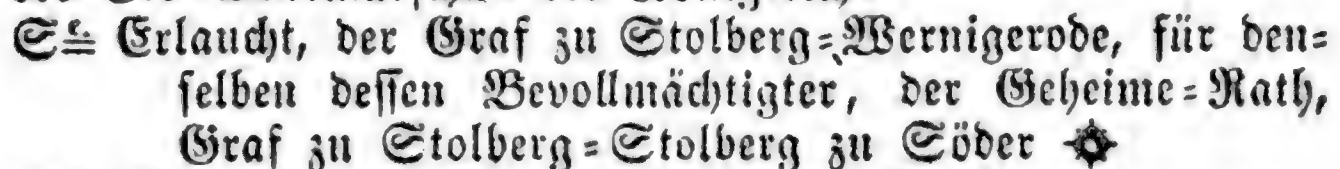 Se. Erlaucht, der Graf zu Stolberg=Wernigerode, für den=
selben dessen Bevollmächtigter, der Geheime=Rath,
Graf zu Stolberg=Stolberg zu Söder